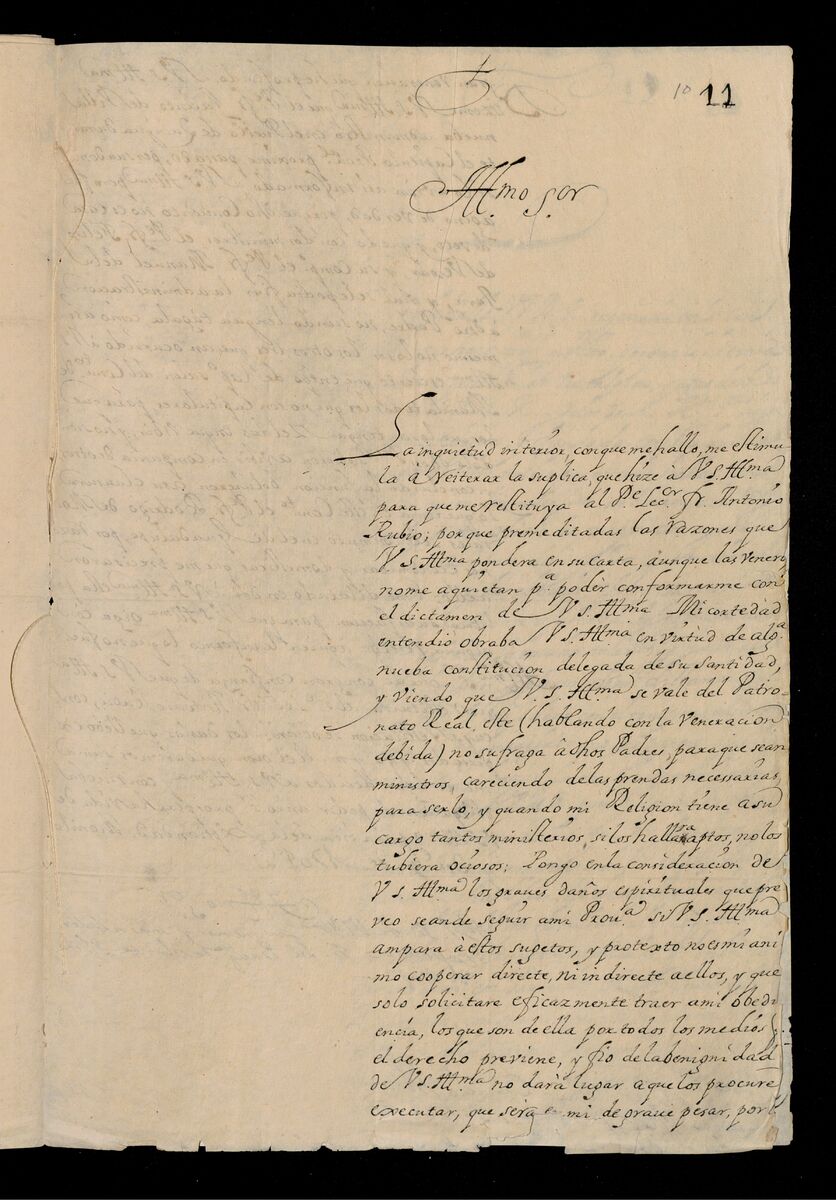 10 11
Illmo Sor
La inquietud interior, con que me hallo, me estimu-
la à reiterar la suplica, que hize à V.S. Illma
para que me restituya al Pe. Lecor fr. Antonio
Rubio; porque premeditadas las razones que
V.S. Illma pondera en su carta, áunque las venero,
no me aquietan pa. podér conformarme con
el dictamen de V.S. Illma Mi cortedad
entendio obraba V.S. Illma en virtud de alga.
nueba constitucion delegada de su Santidad,
y viendo que V.S. Illma se vale del Patro-
nato Real, este (hablando con la veneracion
debida) no sufraga à dhos Padres, para que sean
ministros, careciendo de las prendas necessarias
para serlo, y quando mi Religion tiene a su
cargo tantos ministerios, si los hallara aptos, no los
tubiera ociosos; Pongo en la consideracion de
V.S. Illma los graves daños espirituales que pre
veo se an de seguir a mi Proua. si V.S. Illma
ampara à estos sugetos, y protexto no es mi ani
mo cooperar directe, ni indirecte a ellos, y que
solo solicitare eficazmente traer a mi obedi
encia, los que son de ella por todos los medios
el derecho previene, y fio de la benignidad
de V.S. Illma no darà lugar a que los procure
executar, que sera mi de graue pesar, por